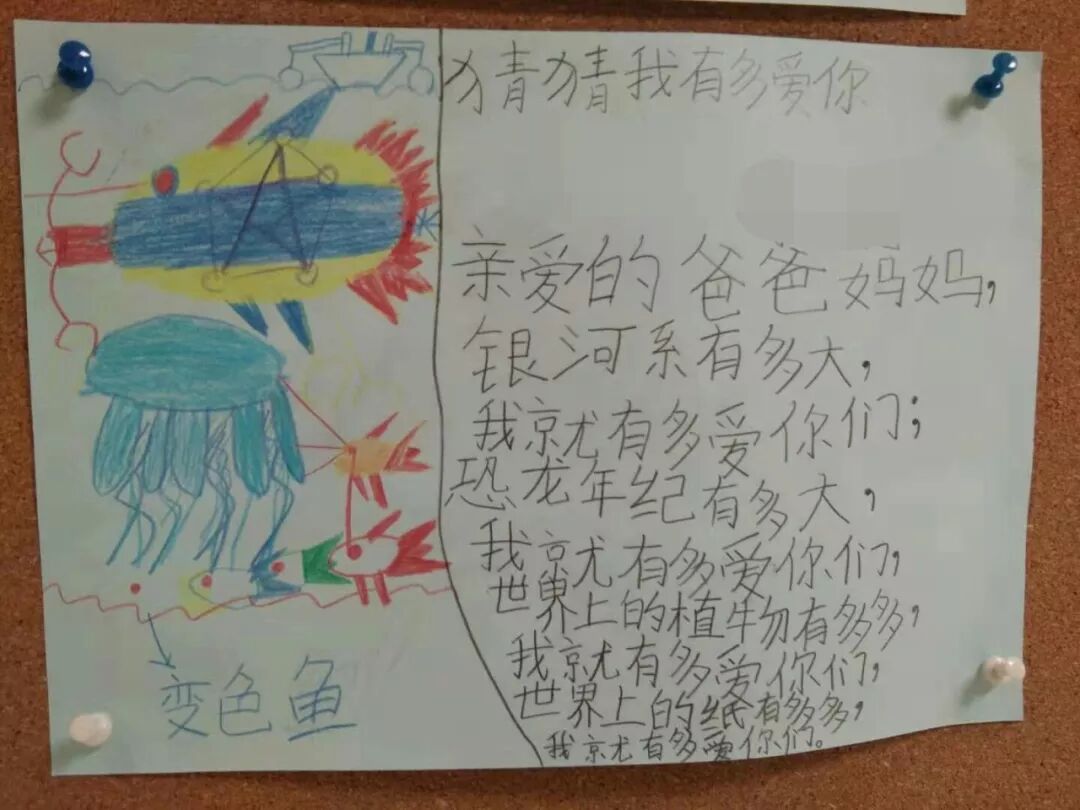 猜猜我有多爱你
亲爱的爸爸妈妈，
银河系有多大，
我就有多爱你们；
恐龙年纪有多大，
我就有多爱你们，
世界上的植物有多多，
我就有多爱你们，
世界上的纸有多多，
我就有多爱你们。
变色鱼